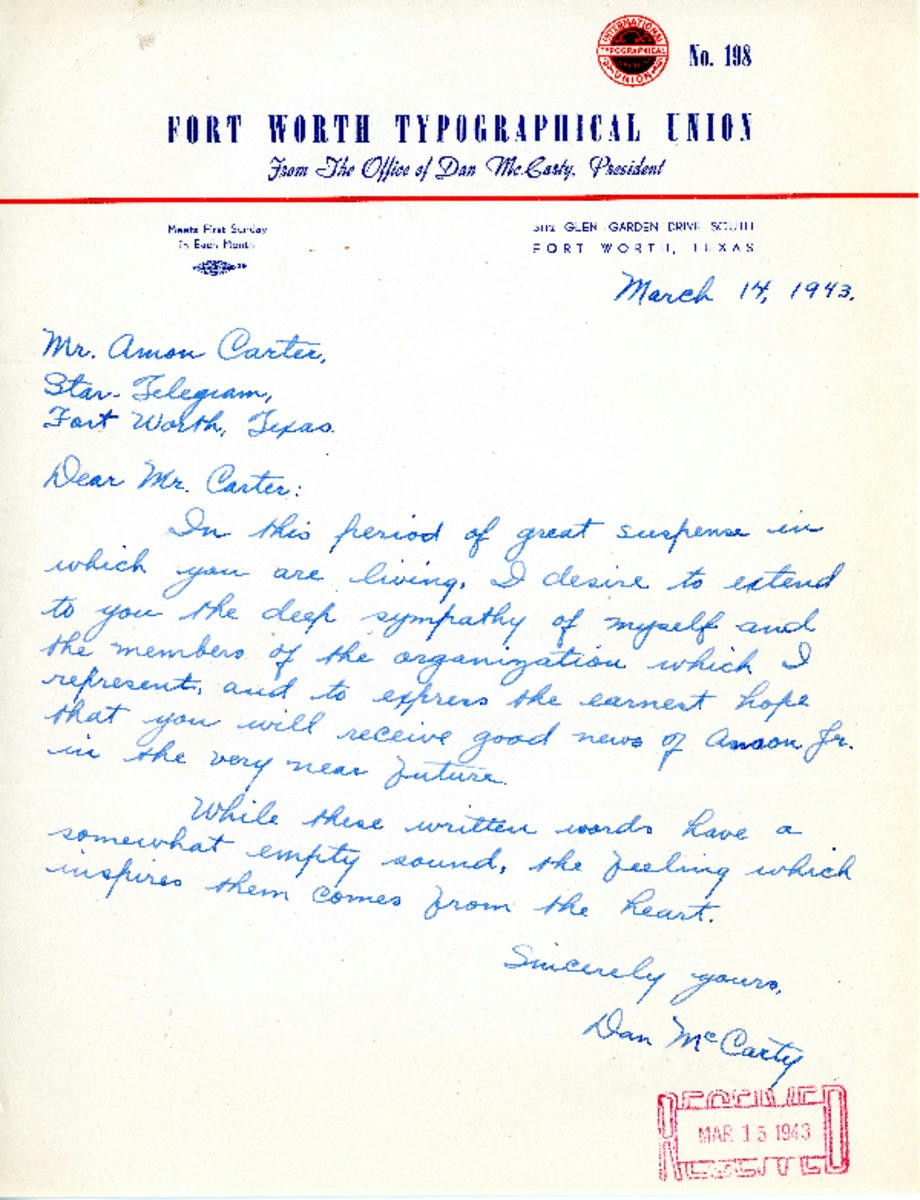 INTERNATIONAL
TYPOGRAPHICAL
UNION
No. 198
FORT WORTH TYPOGRAPHICAL UNION
From The Office of Dan Mc.Carty, President
Meets First Sunday
In Each Month
GLEN GARDEN DRIVE SOUTH
FORT WORTH, TEXAS
March 14, 1943.
Mr. Amon Carter,
Star-Telegram,
Fort Worth, Texas.
Dear Mr. Carter:
In this period of great suspense in
which you are living, I desire to extend
to you the deep sympathy of myself and
the members of the organization which I
represent, and to express the earnest hope
that you will receive good news of Amon Jr.
in the very near future.
While these written words have a
somewhat empty sound, the feeling which
inspires them comes from the heart.
Sincerely yours,
Dan McCarty
RECEIVED
MAR 15 1943